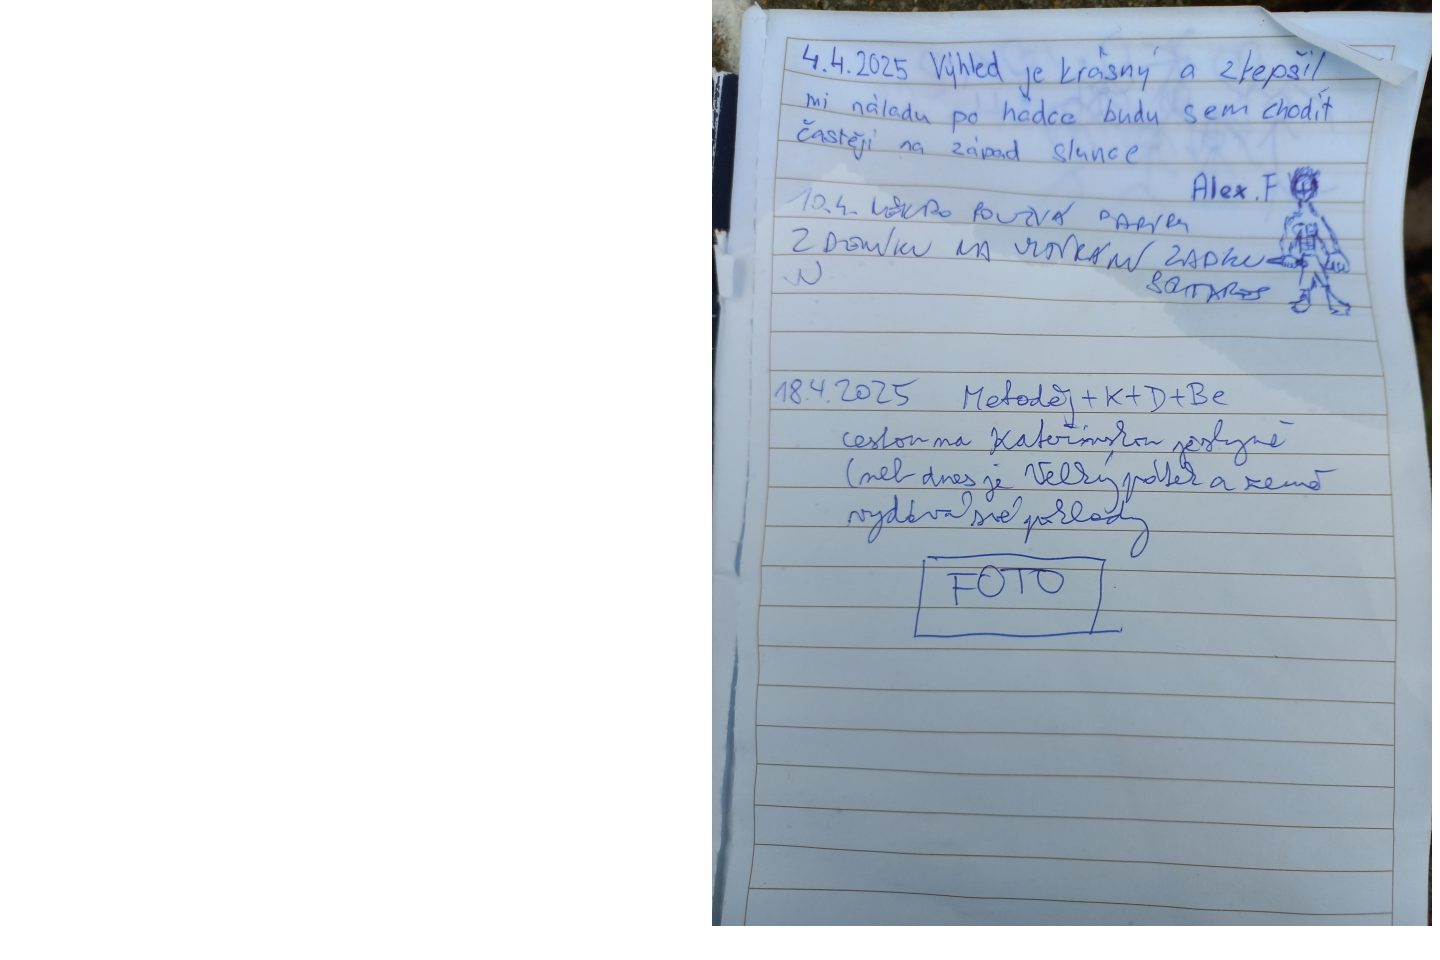 4.4.2025 Výhled je krásný a zlepšil
mi náladu po hádce budu sem chodit
častěji na západ slunce
Alex.F
10.4. NĚKDO POUŽÍVÁ PAPÍRY
Z DOMKU NA UTÍRÁNÍ ZADKU
18.4.2025 Metoděj+K+D+Be
cestou na Kateřinskou jeskyně
(neb dnes je Velký pátek a země
vydává své poklady
FOTO